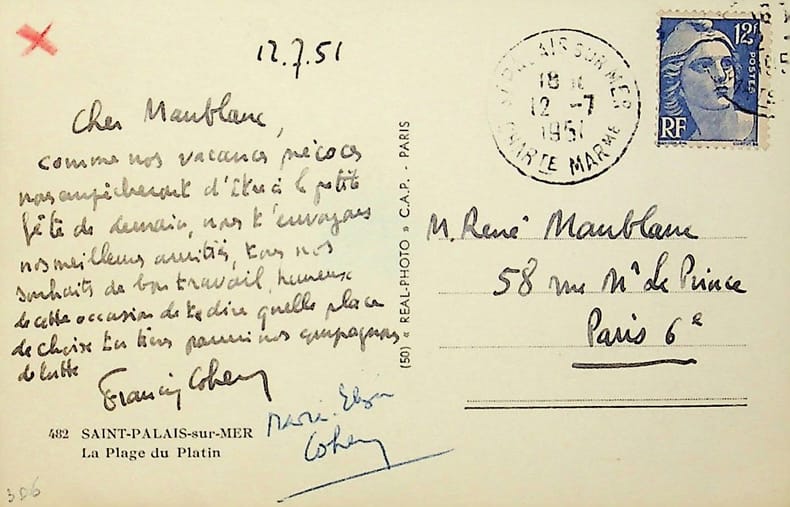 12.7.51
Cher Maublanc,
comme nos vacances précoces
nous empêcheront d'être à la petite
fête de demain, nous t'envoyons
nos meilleures amitiés, tous nos
souhaits de bon travail, heureux
de cette occasion de te dire quelle place
de choix tu tiens parmi nos compagnons
de lutte
Francis Cohen
Marie-Elisa
Cohen
482 SAINT-PALAIS-sur-MER
La Plage du Platin
306
(50) « REAL-PHOTO » C.A.P. - PARIS
ST PALAIS SUR MER
18 H
12 -7
1951
CHARTE MARME
12F
POSTES
RF
M. René Maublanc
58 rue Mr Le Prince
Paris 6e